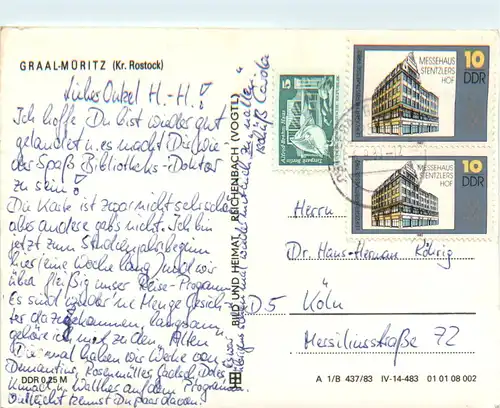 GRAAL-MÜRITZ (Kr. Rostock)
Lieber Onkel H.-H.!
Ich hoffe Du bist wieder gut
gelandet u. es macht Dir wieder
Spaß Bibliotheks-Doktor
zu sein!
Die Karte ist zwar nicht sehr schön
aber andere gab's nicht. Ich bin
jetzt zum Studienjahresbeginn
hier (eine Woche lang) und wir
üben fleißig unser Reise-Programm.
Es sind wieder 'ne Menge Gesich-
ter dazugekommen, langsam
gehöre ich mit zu den Alten
Diesmal haben wir Werke von
Demantius, Rosenmüller,
u. Walther auf dem Programm
vielleicht kennst Du paar davon.
DDR 0,25 M
BILD UND HEIMAT REICHENBACH (VOGTL)
5
DDR
MESSEHAUS
STENTZLERS
HOF
10
DDR
MESSEHAUS
STENTZLERS
HOF
10
DDR
Herrn
Dr. Hans-Herman Röhrig
D 5 Köln
Messiliusstraße 72
A 1/B 437/83 IV-14-483 01 01 08 002